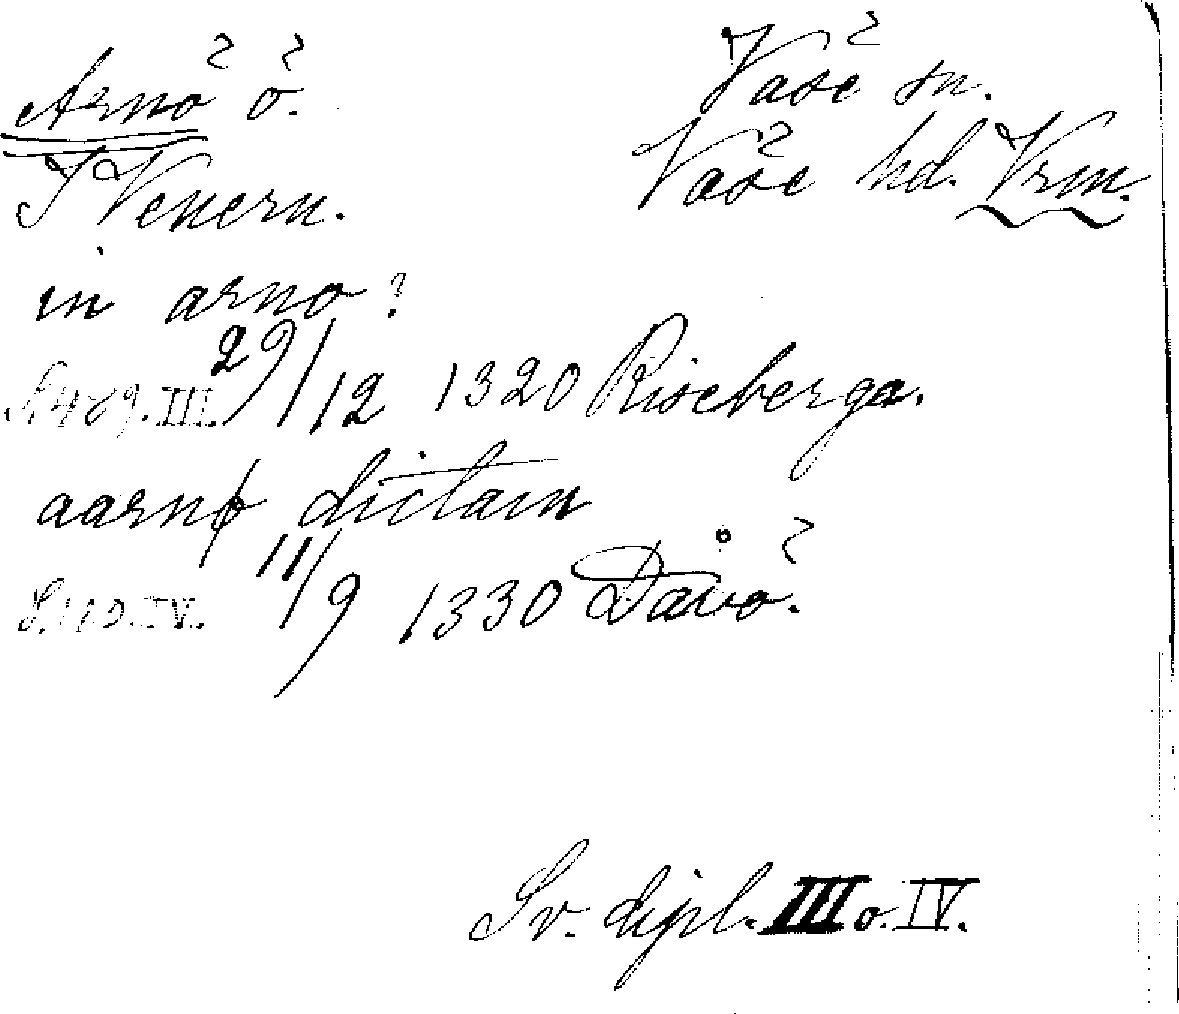 Arnö ö.
Väse sn.
I Venern.
Väse hd. Vrm.
in arno?
S. 489. III. 29/12 1320 Riseberga.
aarnø dictam
S. 110. IV. 11/9 1330 Dåvö.
Sv. dipl. III o. IV.